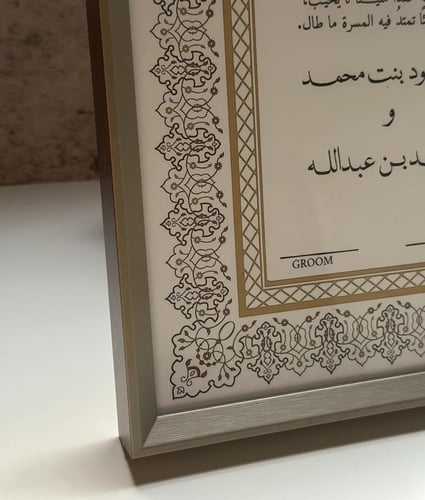 لا يخيب،
تمتدُ فيه المسرة ما طال.
ود بنت محمد
و
د بن عبدالله
GROOM